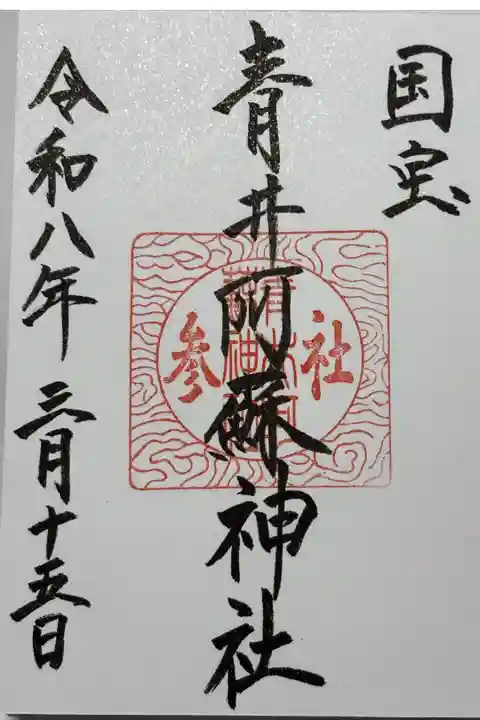 国宝
青井阿蘇神社
社参
令和八年三月十五日